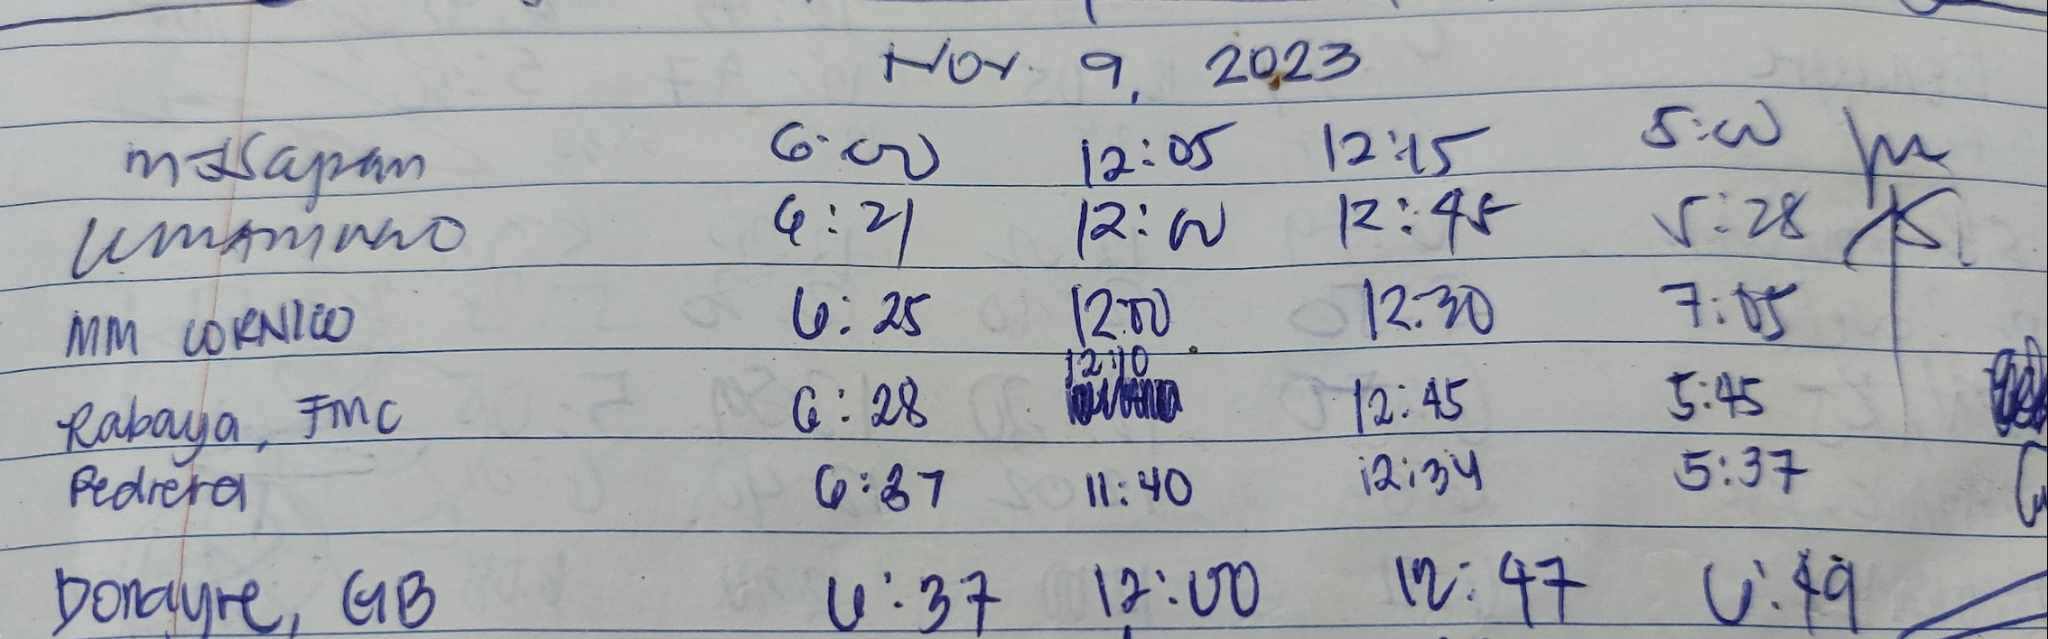 Nov. 9, 2023
6:00 12:05 12:15 5:00
6:21 12:00 12:45 5:28
MM CORNICO 6:25 12:00 12:30 7:05
Rabaya, FMC 6:28 12:10 12:45 5:45
Pedrera 6:37 11:40 12:34 5:37
Donayre, GB 6:37 12:00 12:47 6:49